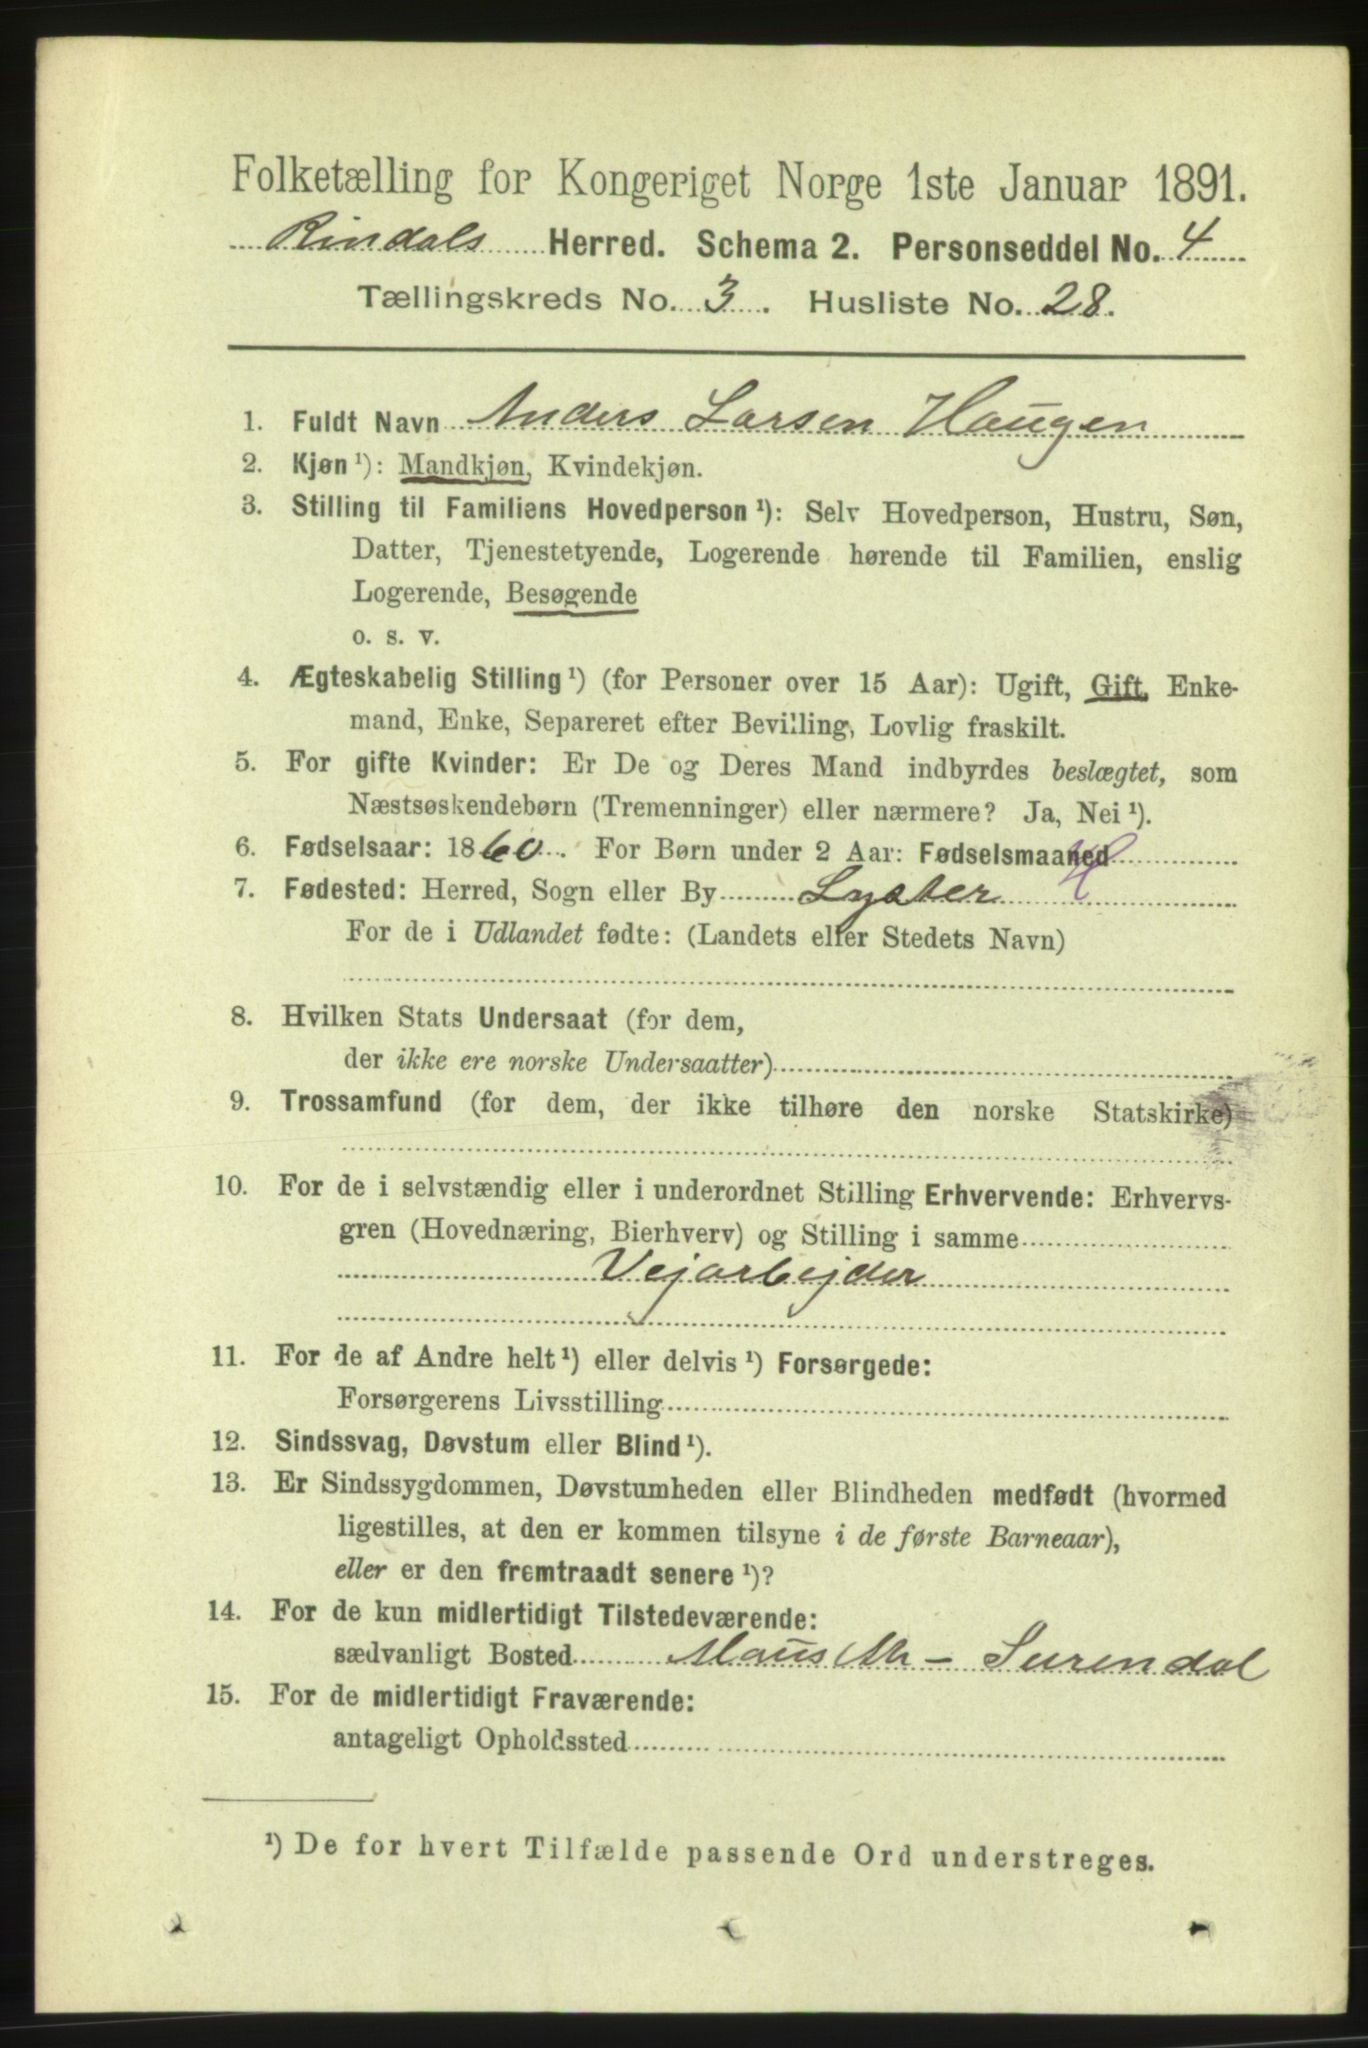 Folketælling for Kongeriget Norge 1ste Januar 1891.
Rindals Herred. Schema 2. Personseddel No. 4
Tællingskreds No. 3. Husliste No. 28.
1. Fuldt Navn Anders Larsen Haugen
2. Kjøn ¹): Mandkjøn, Kvindekjøn.
3. Stilling til Familiens Hovedperson ¹): Selv Hovedperson, Hustru, Søn,
Datter, Tjenestetyende, Logerende hørende til Familien, enslig
Logerende, Besøgende
o. s. v.
4. Ægteskabelig Stilling ¹) (for Personer over 15 Aar): Ugift, Gift, Enke-
mand, Enke, Separeret efter Bevilling, Lovlig fraskilt.
5. For gifte Kvinder: Er De og Deres Mand indbyrdes beslægtet, som
Næstsøskendebørn (Tremenninger) eller nærmere? Ja, Nei ¹).
6. Fødselsaar: 1860. For Børn under 2 Aar: Fødselsmaaned
7. Fødested: Herred, Sogn eller By Lyster
For de i Udlandet fødte: (Landets eller Stedets Navn)
8. Hvilken Stats Undersaat (for dem,
der ikke ere norske Undersaatter)
9. Trossamfund (for dem, der ikke tilhøre den norske Statskirke)
10. For de i selvstændig eller i underordnet Stilling Erhvervende: Erhvervs-
gren (Hovednæring, Bierhverv) og Stilling i samme
Vejarbejder
11. For de af Andre helt ¹) eller delvis ¹) Forsørgede:
Forsørgerens Livsstilling
12. Sindssvag, Døvstum eller Blind ¹).
13. Er Sindssygdommen, Døvstumheden eller Blindheden medfødt (hvormed
ligestilles, at den er kommen tilsyne i de første Barneaar),
eller er den fremtraadt senere ¹)?
14. For de kun midlertidigt Tilstedeværende:
sædvanligt Bosted - Surendal
15. For de midlertidigt Fraværende:
antageligt Opholdssted
¹) De for hvert Tilfælde passende Ord understreges.